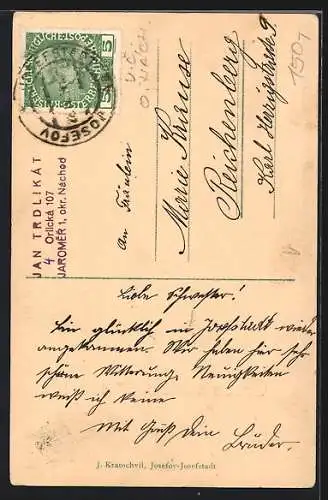 JOSEFOV
5
JAN TRDLIKÁT
4 Orlická 107
JAROMĚŘ 1, okr. Náchod
An Fräulein
Marie Krause
Reichenberg
Liebe Schwester!
Bin glücklich in Josefstadt wieder
angekommen. Wir haben hier sehr
schöne Witterung. Neuigkeiten
weiß ich keine
Mit Gruß Dein
Bruder.
J. Kratochvil, Josefov-Josefstadt